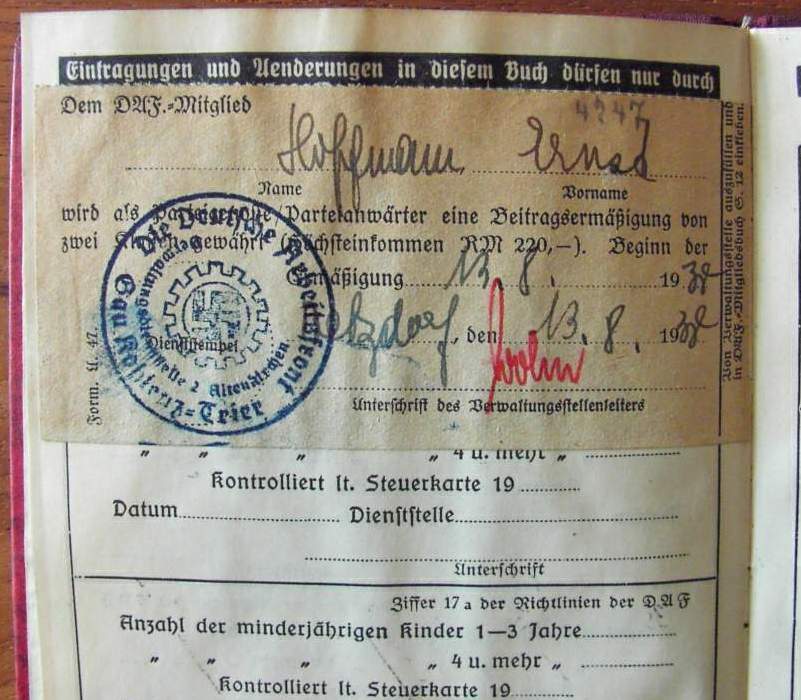 Eintragungen und Aenderungen in diesem Buch dürfen nur durch
Dem DAF.-Mitglied
4247
Hoffmann Ernst
Name Vorname
wird als Parteigenosse/Parteianwärter eine Beitragsermäßigung von
zwei gewährt (Höchsteinkommen RM 220,—). Beginn der
Ermäßigung 13. 8. 1938
den 13. 8. 1938
Dienststempel
Unterschrift des Verwaltungsstellenleiters
Form. A. 47.
Von Verwaltungsstelle auszufüllen und
in DAF.-Mitgliedsbuch S. 12 einkleben.
Die Deutsche Arbeitsfront
Gau Koblenz-Trier
Altenkirchen
" " " " 4 u. mehr "
Kontrolliert lt. Steuerkarte 19
Datum Dienststelle
Unterschrift
Ziffer 17a der Richtlinien der DAF
Anzahl der minderjährigen Kinder 1—3 Jahre
" " " " 4 u. mehr "
Kontrolliert lt. Steuerkarte 19